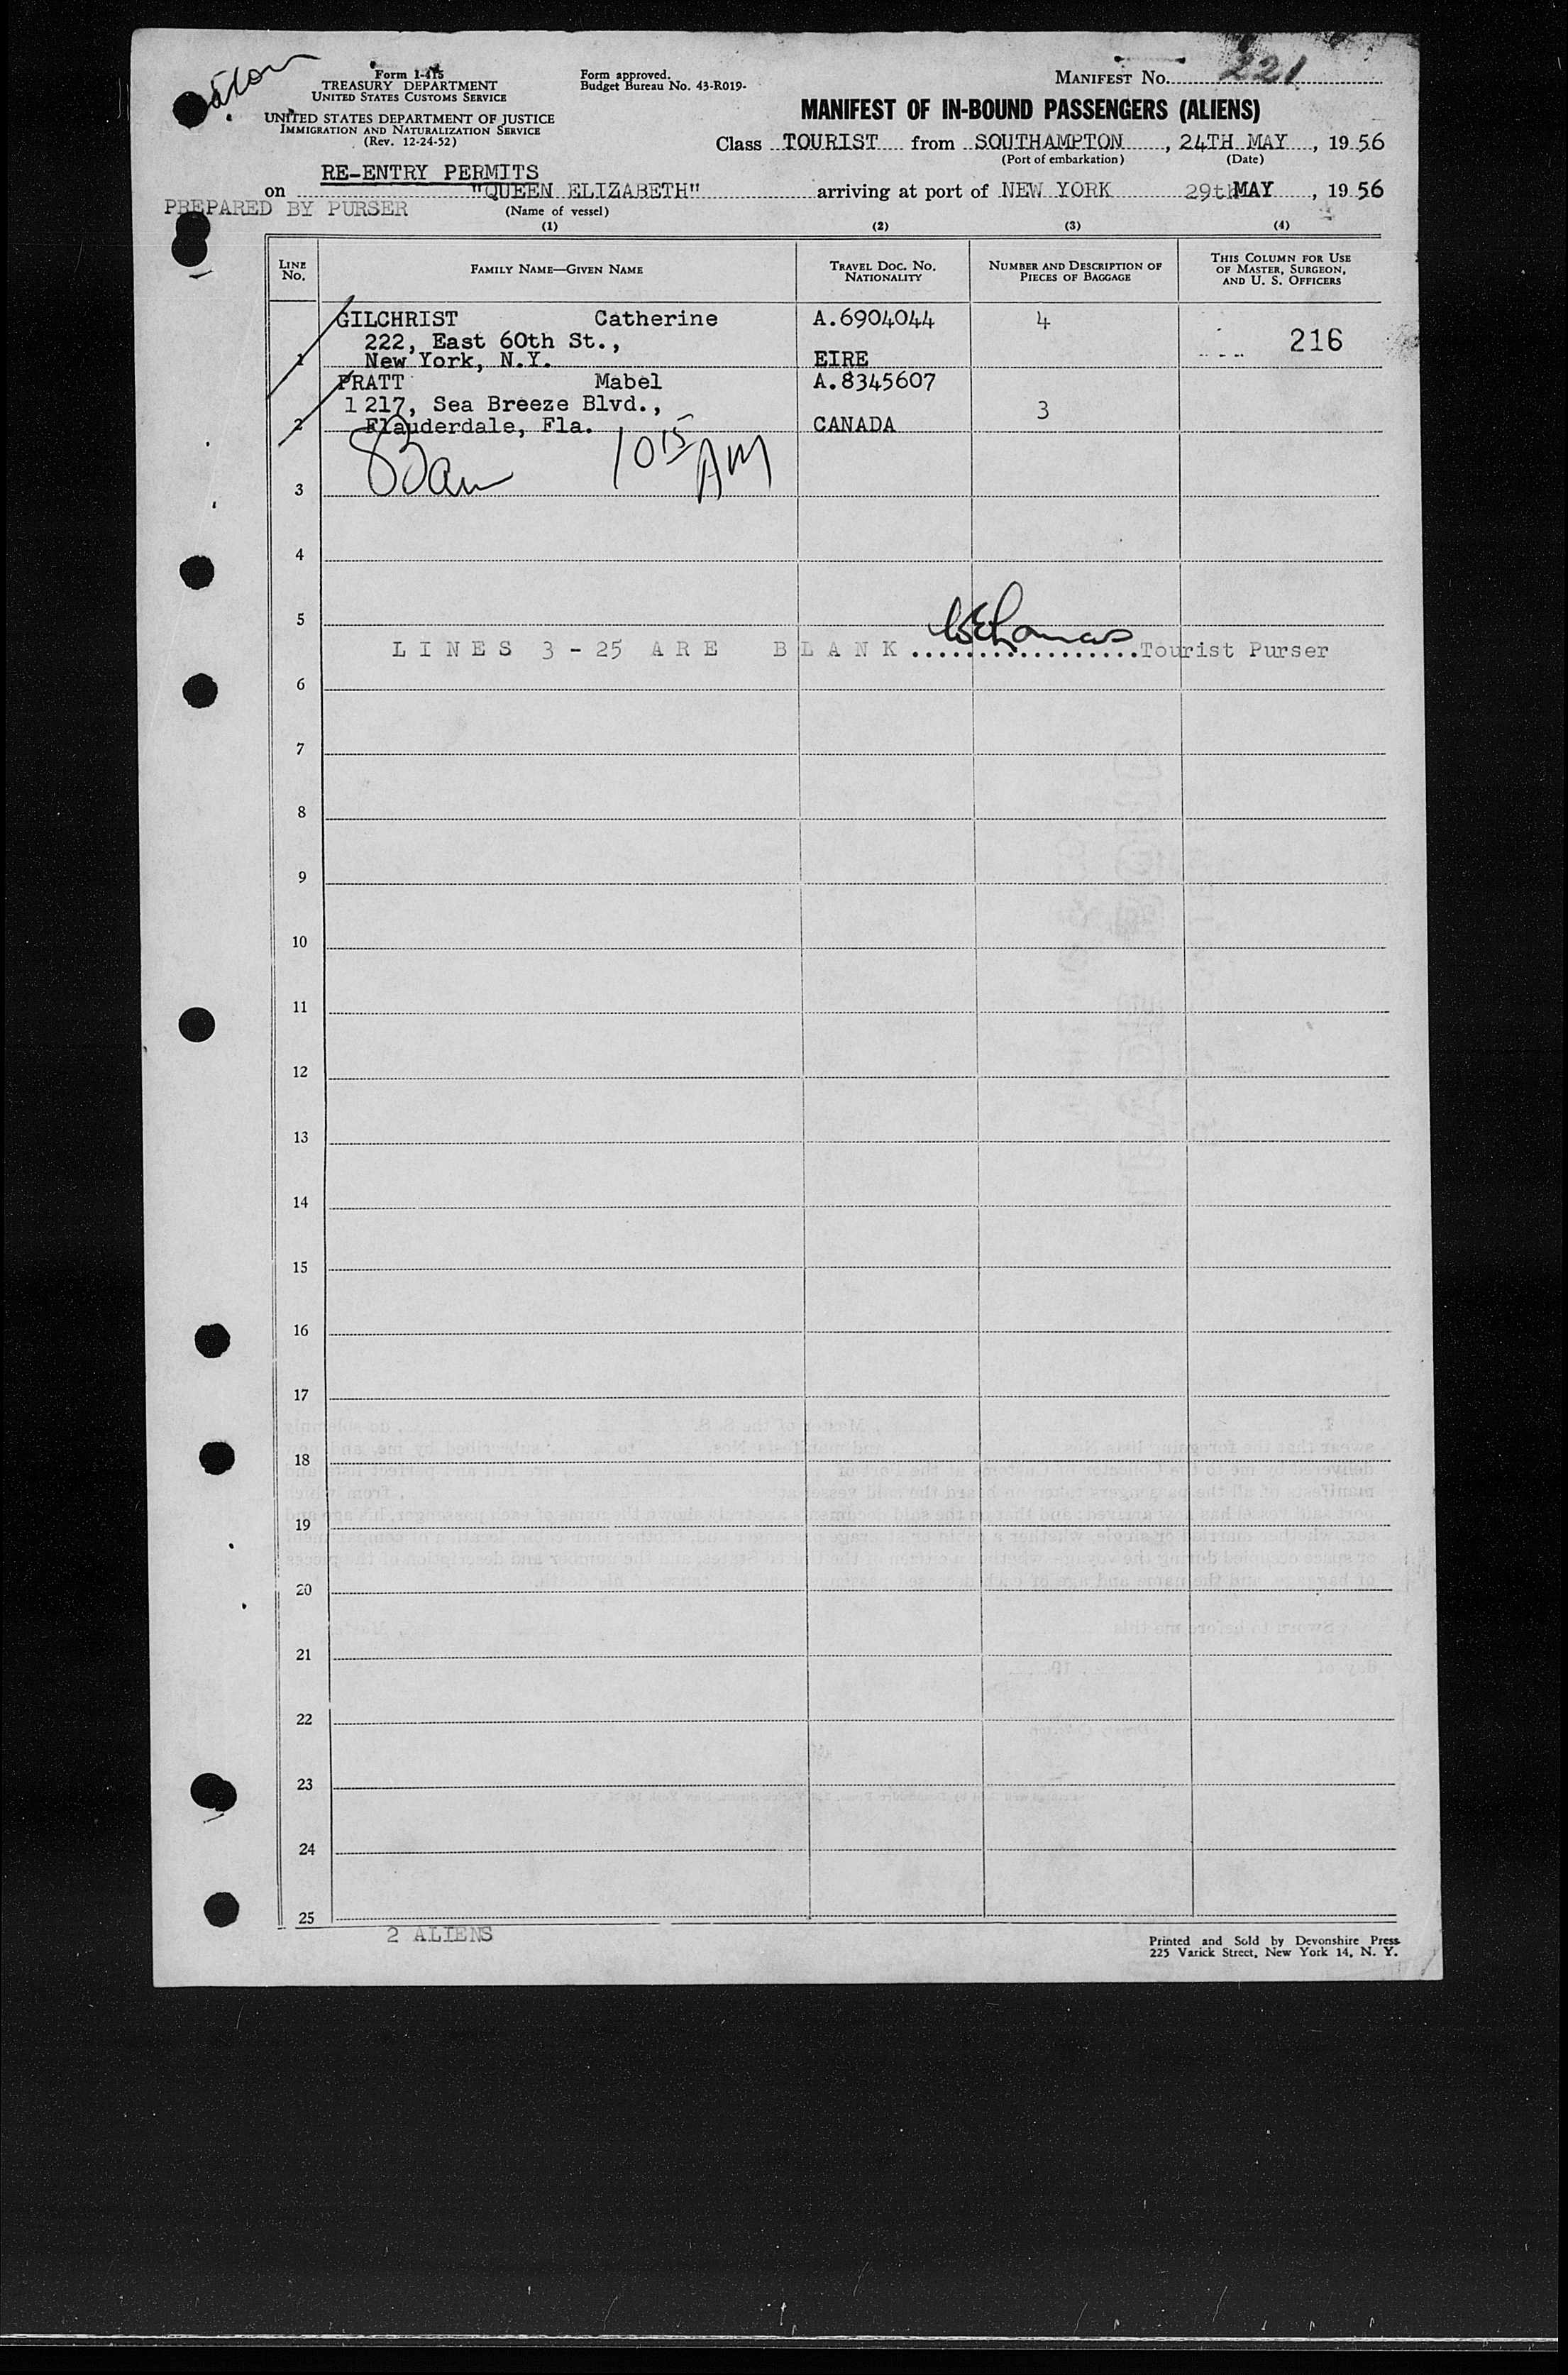 Form I-415
TREASURY DEPARTMENT
UNITED STATES CUSTOMS SERVICE
UNITED STATES DEPARTMENT OF JUSTICE
IMMIGRATION AND NATURALIZATION SERVICE
(Rev. 12-24-52)
Form approved.
Budget Bureau No. 43-R019-
MANIFEST NO. 221
MANIFEST OF IN-BOUND PASSENGERS (ALIENS)
Class TOURIST from SOUTHAMPTON, 24TH MAY, 1956
(Port of embarkation) (Date)
RE-ENTRY PERMITS
on "QUEEN ELIZABETH" arriving at port of NEW YORK 29th MAY, 1956
PREPARED BY PURSER
(Name of vessel)
(1) (2) (3) (4)
LINE NO. FAMILY NAME—GIVEN NAME TRAVEL DOC. NO. NATIONALITY NUMBER AND DESCRIPTION OF PIECES OF BAGGAGE THIS COLUMN FOR USE OF MASTER, SURGEON, AND U. S. OFFICERS
GILCHRIST Catherine A.6904044 4
222, East 60th St., 216
1 New York, N.Y. EIRE
PRATT Mabel A.8345607
1217, Sea Breeze Blvd., 3
2 Flauderdale, Fla. CANADA
10 15 AM
3
4
5
LINES 3-25 ARE BLANK..................Tourist Purser
6
7
8
9
10
11
12
13
14
15
16
17
18
19
20
21
22
23
24
25
2 ALIENS
Printed and Sold by Devonshire Press
225 Varick Street, New York 14, N. Y.